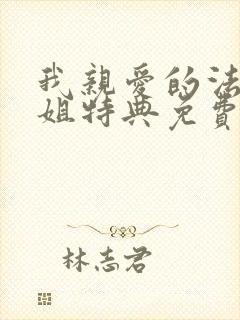 我親愛的法
姐特典免費
林志君